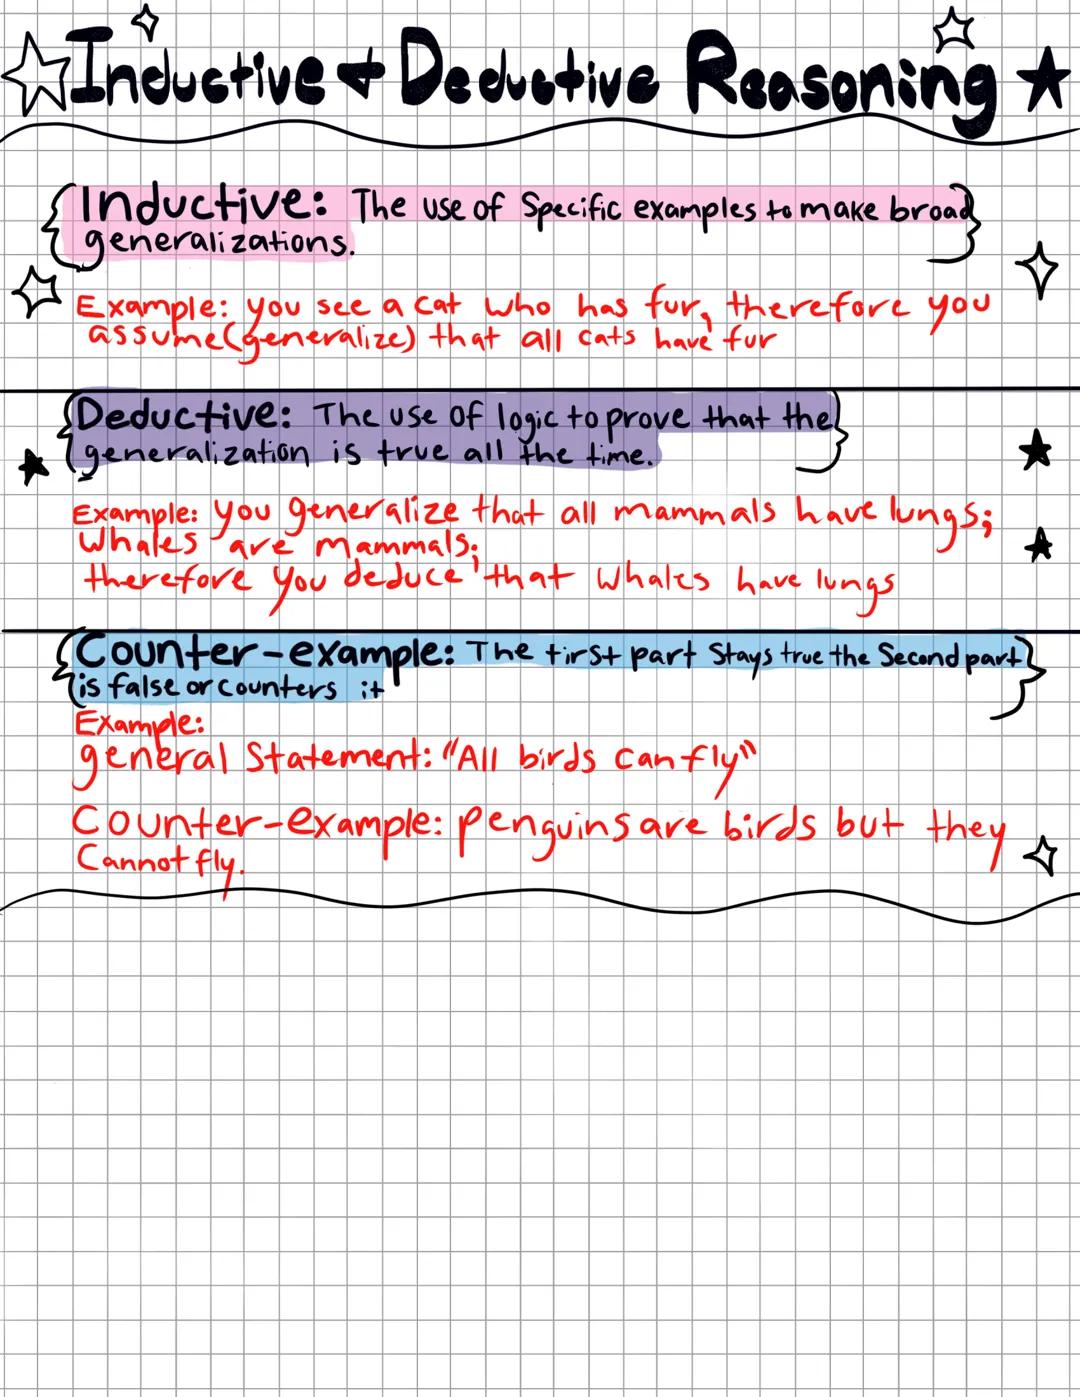 Inductive & Deductive Reasoning
Inductive: The use of Specific examples to make broad
generalizations.
Example: you see a cat who has fur, therefore you
assume(generalize) that all cats have fur
Deductive: The use of logic to prove that the
generalization is true all the time.
Example: you generalize that all mammals have lungs;
Whales are mammals;
therefore you deduce that whales have lungs
Counter-example: The first part Stays true the Second part
is false or counters it
Example:
general Statement: "All birds can fly"
Counter-example: penguins are birds but they
Cannot fly.